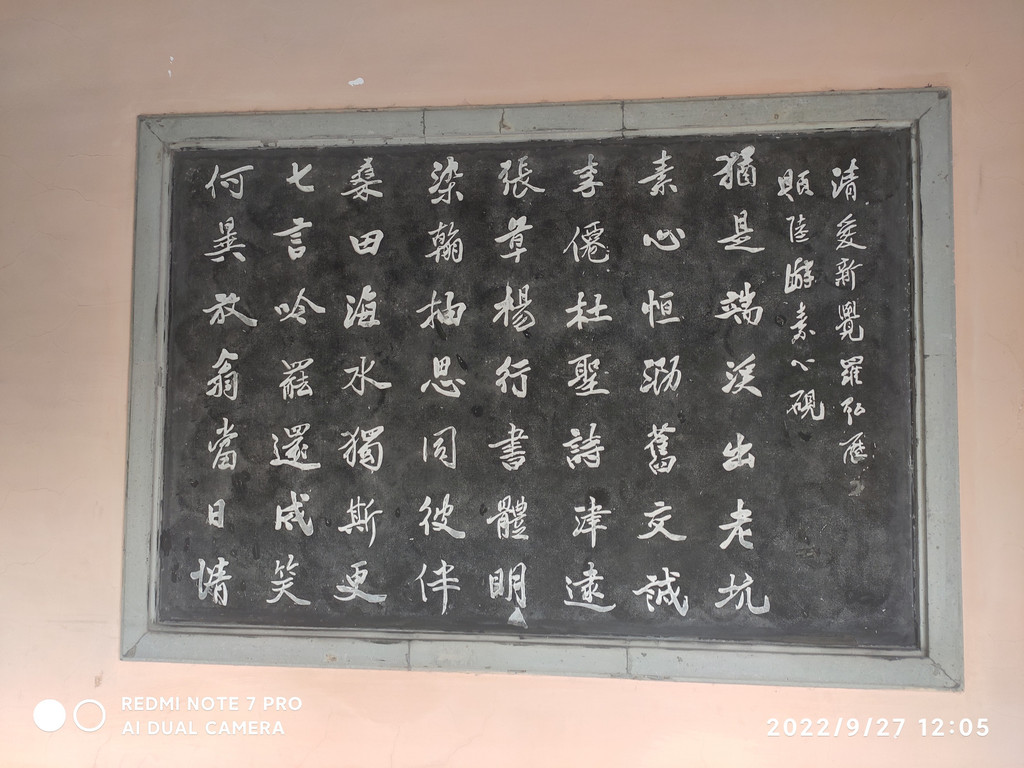 清爱新覺羅弘歷
題陸游素心硯
猶是端溪出老坑
素心恒泐舊交誠
李僊杜聖詩津逮
張草楊行書體明
染翰抽思同彼伴
桑田海水獨斯更
七言吟罷還成笑
何異放翁當日情
REDMI NOTE 7 PRO
AI DUAL CAMERA
2022/9/27 12:05